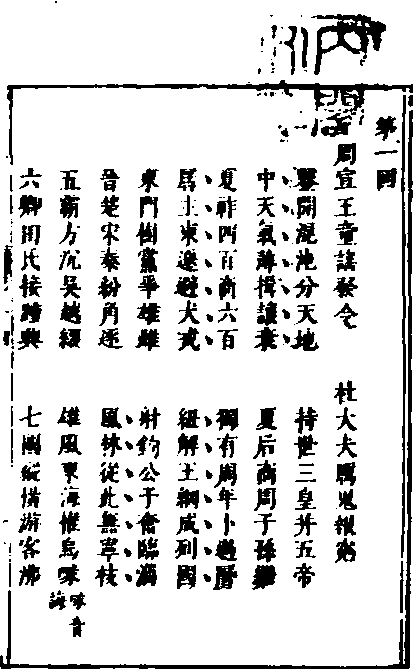 第一回
周宣王童謠發令 杜大夫厲鬼報
鑿開混沌分天地 持世三皇并五帝
中天氣薄揖讓衰 夏后商周子孫繼
夏祚四百商六百 獨有周年卜過曆
東遷避犬戎 紐解王綱成列國
東門樹黨爭雄雌 射鈎公子奮臨淄
晉楚宋秦紛角逐 風林從此無寧枝
五霸方沉吳越 雄風東海惟鳥喙 喙音誨
六卿田氏接踵興 七國縱橫游客沸